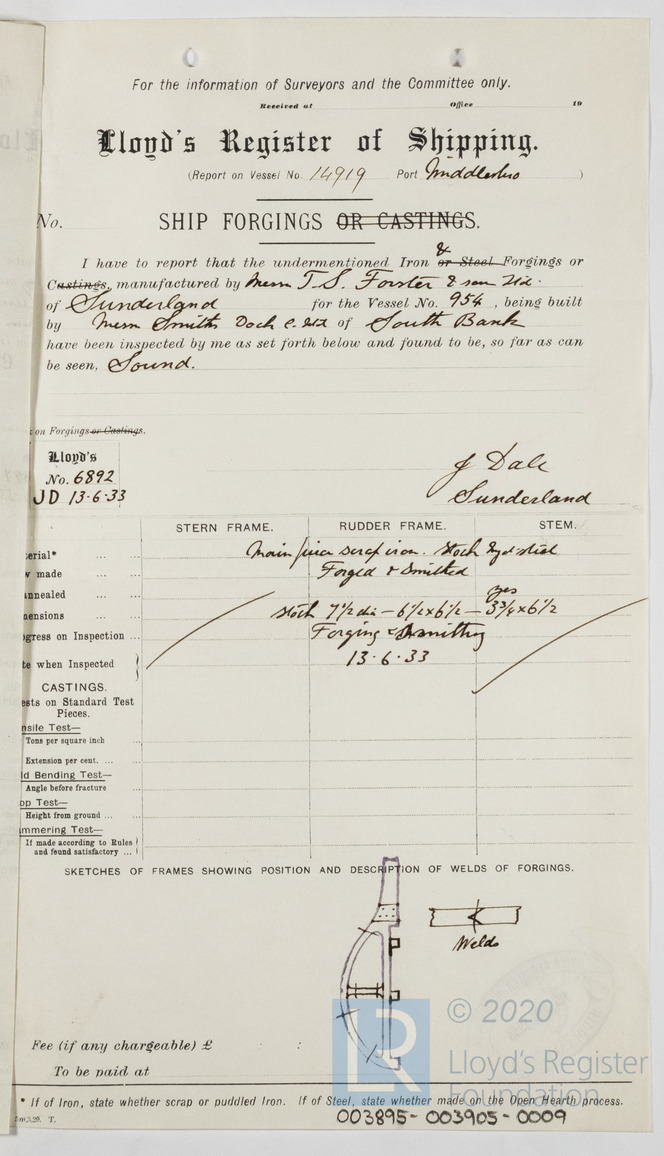 For the information of Surveyors and the Committee only.
Received at Office 19
Lloyd's Register of Shipping.
(Report on Vessel No. 14919 Port Middlesbro )
No. SHIP FORGINGS OR CASTINGS.
&
I have to report that the undermentioned Iron or Steel Forgings or
Castings, manufactured by Messrs T. S. Forster & son Ltd.
of Sunderland for the Vessel No. 954, being built
by Messrs Smiths Dock C. Ltd of South Bank
have been inspected by me as set forth below and found to be, so far as can
be seen, Sound.
on Forgings or Castings.
Lloyd's
No. 6892
JD 13.6.33
J Dale
Sunderland
STERN FRAME. RUDDER FRAME. STEM.
erial* ... ... Main piece scrap iron. Stock steel
made ... ... Forged & Smithed
nnealed ... ... yes
ensions ... ... stock 7½ dia - 6½ x 6½ - 3¾ x 6½
gress on Inspection ... Forging & Smithing
te when Inspected 13.6.33
CASTINGS.
ests on Standard Test
Pieces.
nsile Test—
Tons per square inch ...
Extension per cent. ... ...
ld Bending Test—
Angle before fracture ...
op Test—
Height from ground ... ...
mmering Test—
If made according to Rules
and found satisfactory ...
SKETCHES OF FRAMES SHOWING POSITION AND DESCRIPTION OF WELDS OF FORGINGS.
Welds
Fee (if any chargeable) £ :
To be paid at
LR
© 2020
Lloyd's Register
Foundation
* If of Iron, state whether scrap or puddled Iron. If of Steel, state whether made on the Open Hearth process.
T.
003895-003905-0009